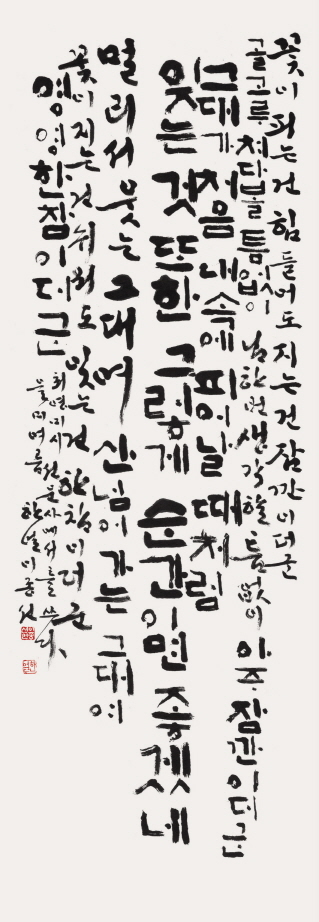 꽃이 피는 건 힘들어도 지는 건 잠깐이더군
골고루 쳐다볼 틈 없이 님 한번 생각할 틈 없이 아주 잠깐이더군
그대가 처음 내 속에 피어날 때처럼
잊는 것 또한 그렇게 순간이면 좋겠네
멀리서 웃는 그대여 산 넘어 가는 그대여
꽃이 지는 건 쉬워도 잊는 건 한참이더군
영영 한참이더군
최영미 시 선운사에서를 쓰다
을미여름 한얼 이종선